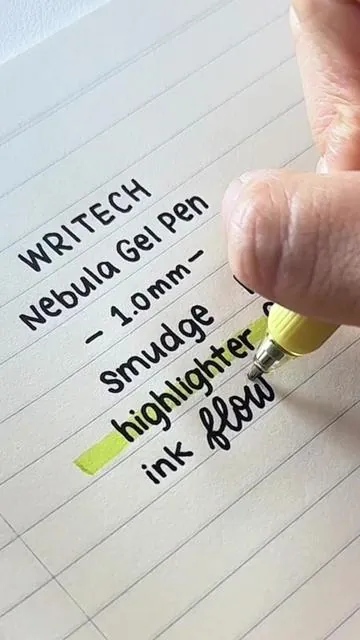 WRITECH
Nebula Gel Pen
- 1.0mm -
smudge
highlighter
ink flow